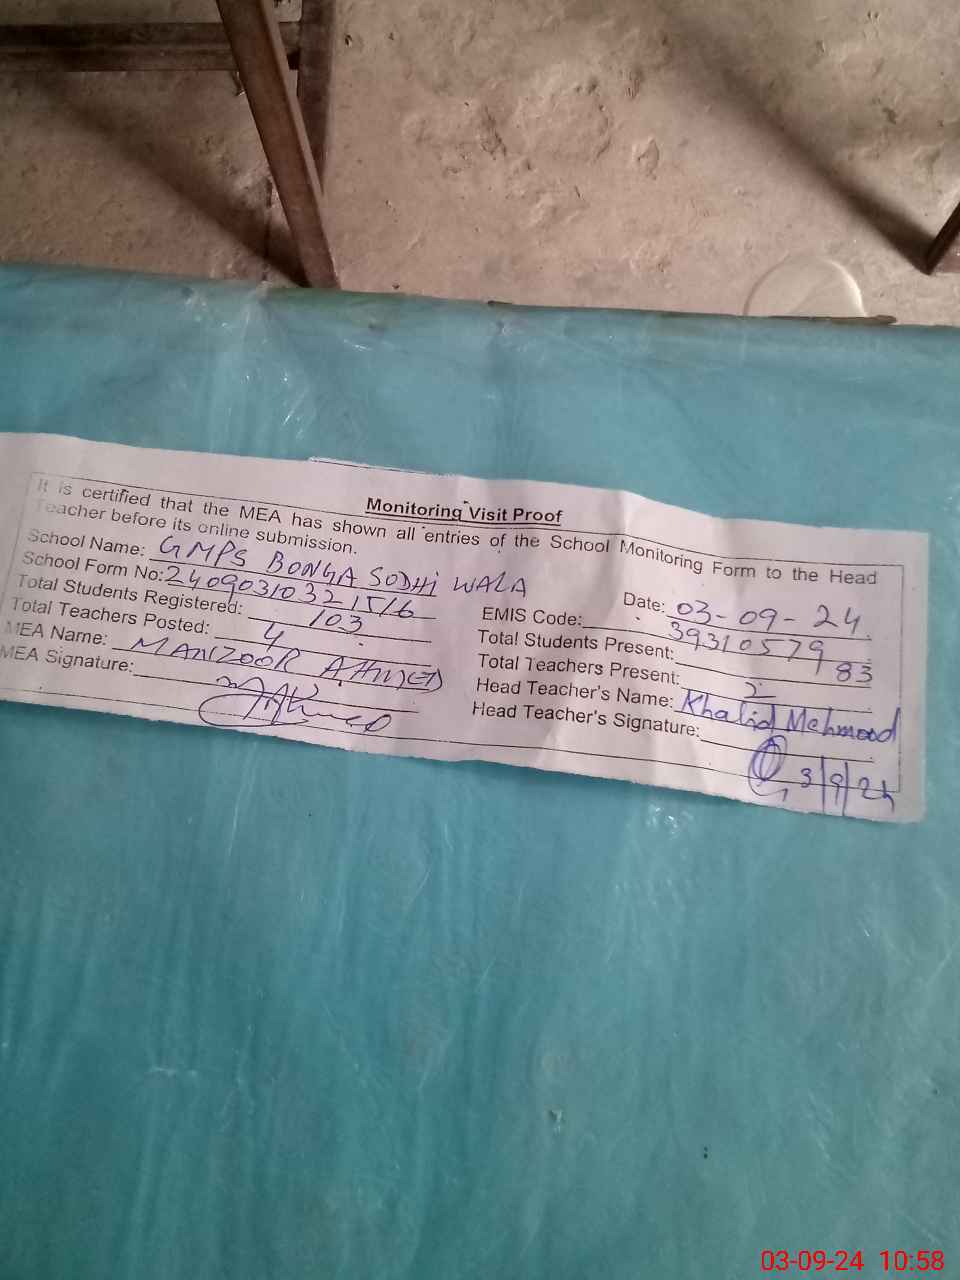 Monitoring Visit Proof
It is certified that the MEA has shown all entries of the School Monitoring Form to the Head
Teacher before its online submission.
School Name: GMPS BONGA SODHI WALA
Date: 03-09-24
School Form No: 24090310321516
EMIS Code: 39310579
Total Students Registered: 103
Total Students Present: 83
Total Teachers Posted: 4
Total Teachers Present: 2
MEA Name: MANZOOR AHMED
Head Teacher's Name: Khalid Mehmood
MEA Signature:
Head Teacher's Signature:
3/9/24
03-09-24 10:58